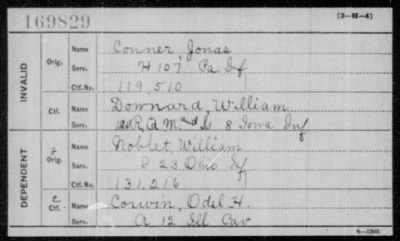 169829
(3-H-4)
INVALID
Orig.
Name Conner, Jonas
Serv. H 107 Pa Inf
Ctf. No. 119,510
Ctf.
Name Downard, William
Serv. R, Q M and L 8 Iowa Inf
DEPENDENT
2
Orig.
Name Noblet, William
Serv. 23 Ohio Inf
Ctf. No. 131,216
C
Ctf.
Name Corwin, Odel H.
Serv. A 12 Ill Cav